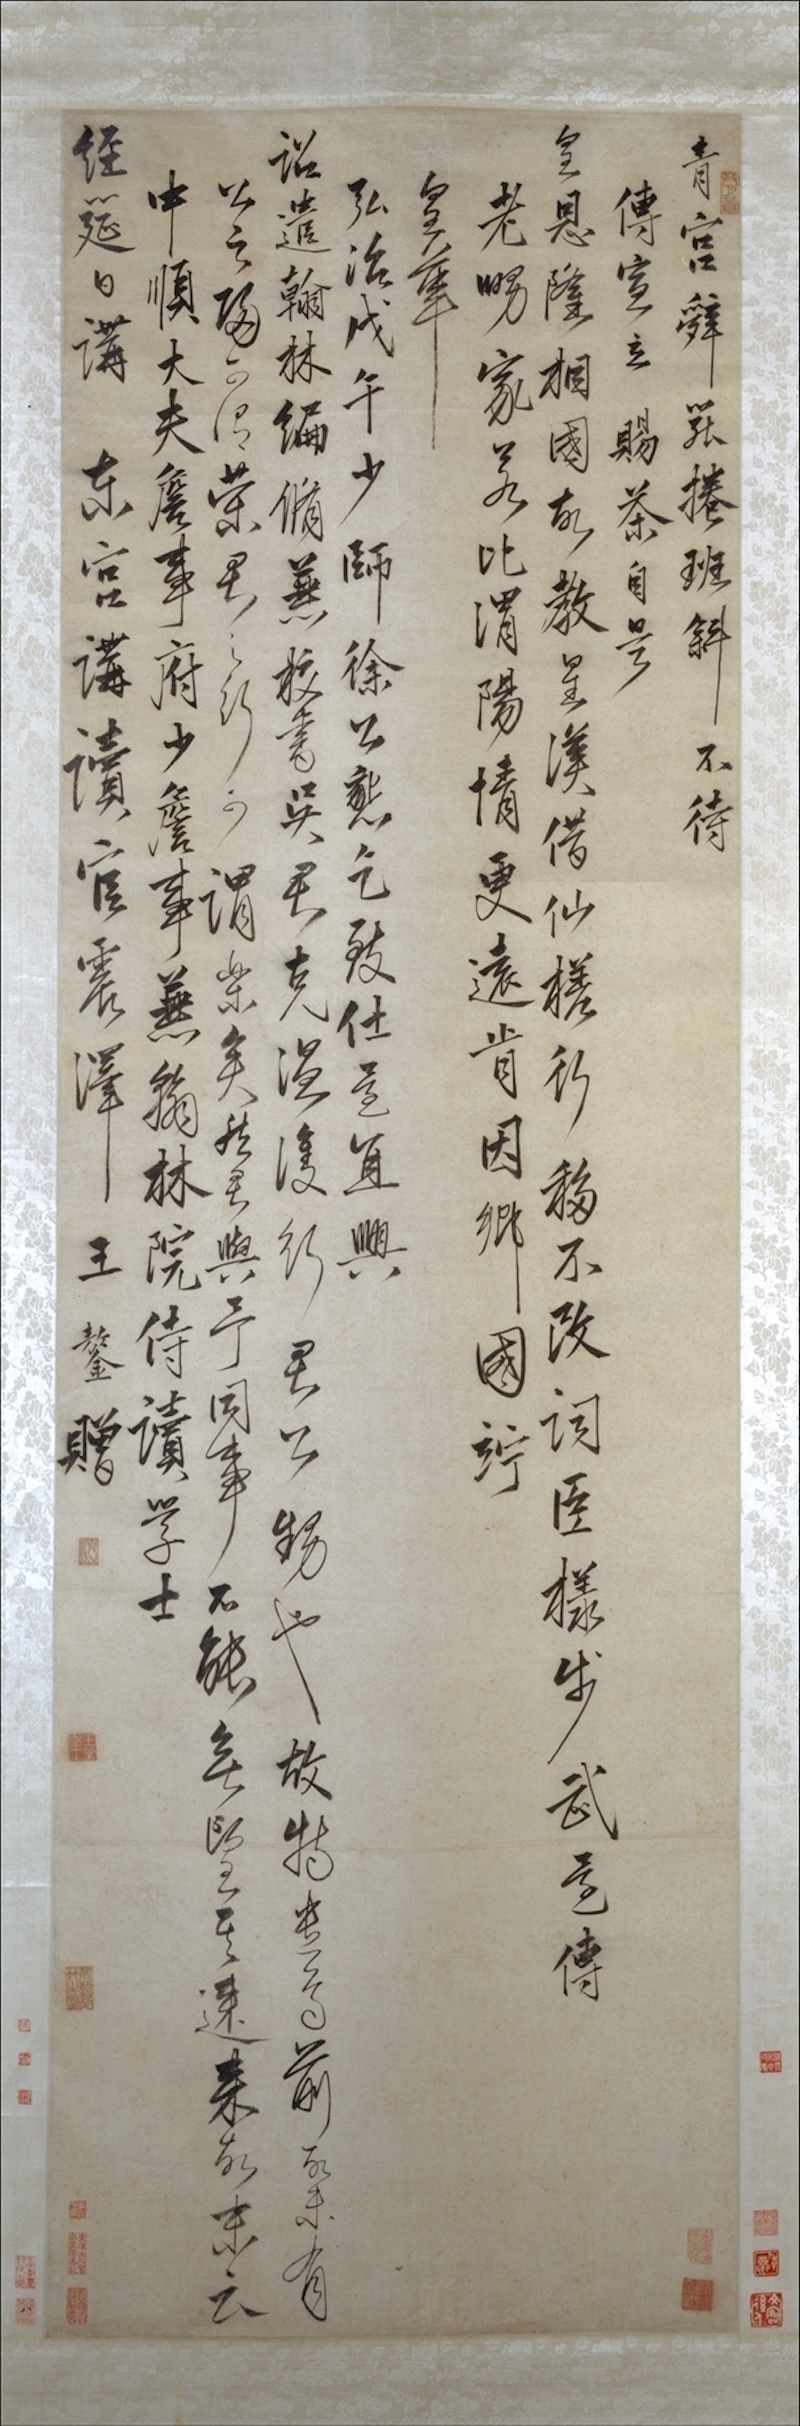 青宮辭罷捲班斜不待
傳宣立賜茶自是
皇恩隆相國故教星漢借仙槎行移不改詞臣樣步武重傳
老舅家若比渭陽情更遠肯因鄉國詫
皇華
弘治戊午少師徐公懇乞致仕還宜興
詔遣翰林編脩兼校書吳君克溫護行君公甥也故特遣焉前此未有
公之歸可謂榮君之行可謂樂矣然君與予同事不能無望其速來故末云
中順大夫詹事府少詹事兼翰林院侍讀學士
經筵日講東宮講讀官震澤王鏊贈